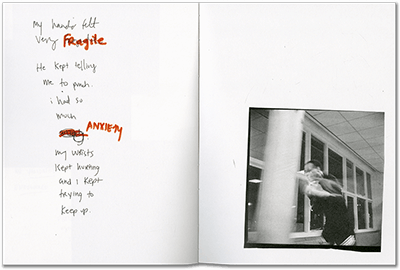 my hands felt
very FRagile
He kept telling
me to push.
i had so
much
ANXIETY
my wrists
kept hurting
and i kept
trying to
keep up.